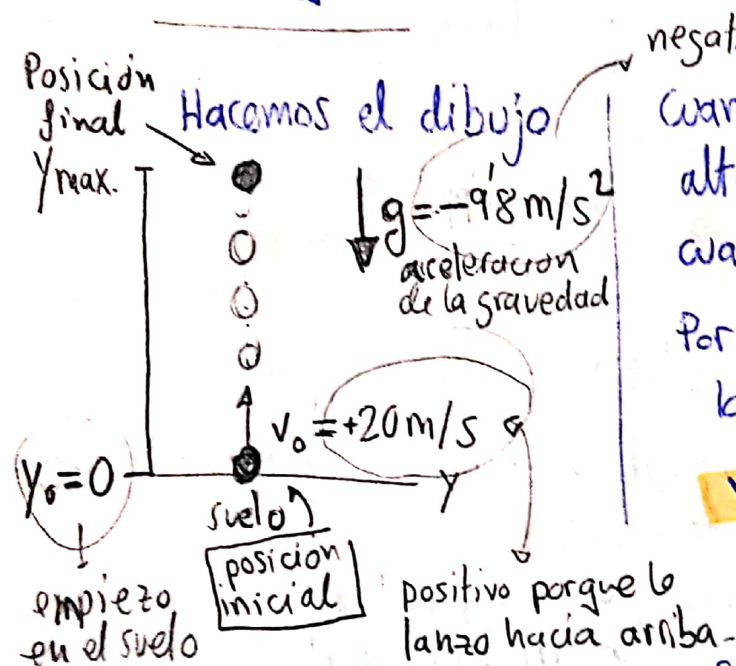 Posición
final
Ymax.
Hacemos el dibujo
g=-9'8m/s²
aceleracion
de la gravedad
v₀=+20m/s
y₀=0
Y
suelo
posición
inicial
empiezo
en el suelo
positivo porque lo
lanzo hacia arriba-
negat
Cuan
alt
cua
Por
lo